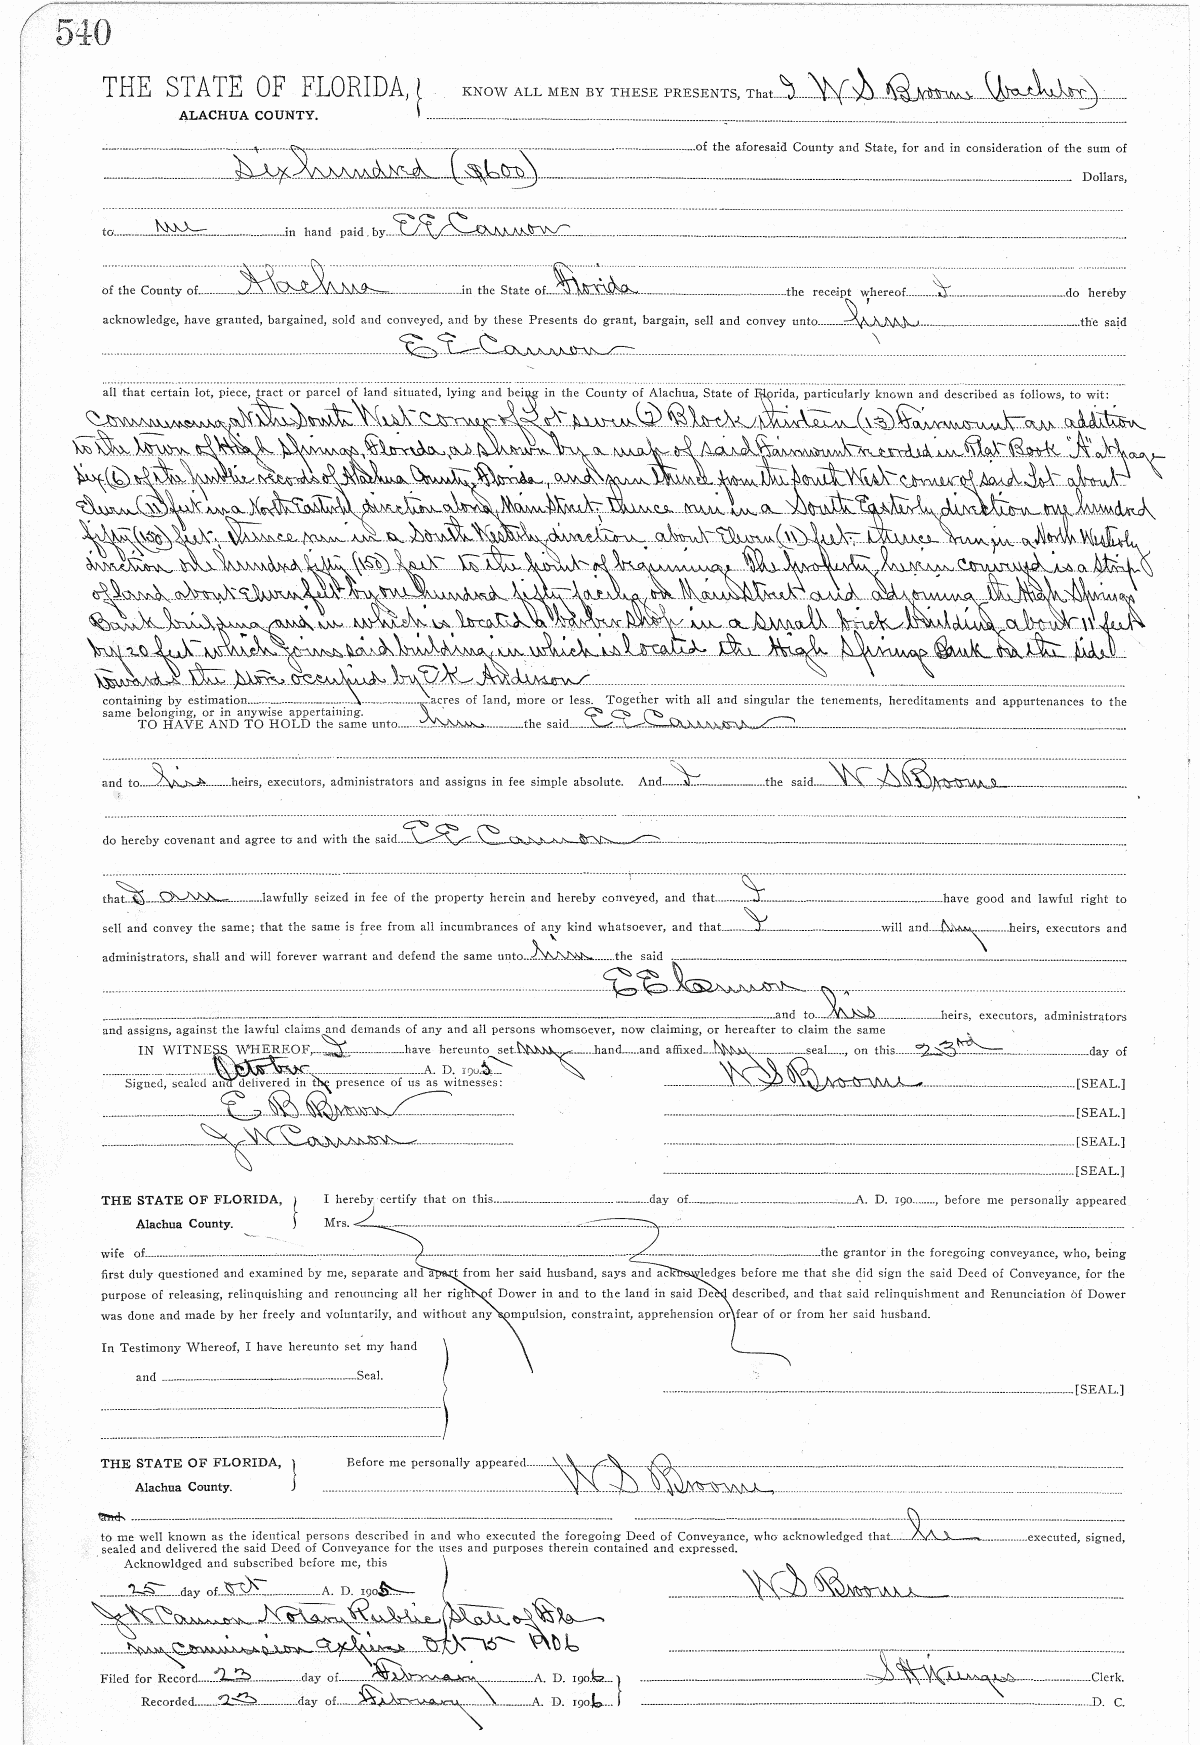 540
THE STATE OF FLORIDA, KNOW ALL MEN BY THESE PRESENTS, That I W S Broome (bachelor)
ALACHUA COUNTY.
of the aforesaid County and State, for and in consideration of the sum of
Six hundred ($600) Dollars,
to me in hand paid by E E Cannon
of the County of Alachua in the State of Florida the receipt whereof I do hereby
acknowledge, have granted, bargained, sold and conveyed, and by these Presents do grant, bargain, sell and convey unto him the said
E E Cannon
all that certain lot, piece, tract or parcel of land situated, lying and being in the County of Alachua, State of Florida, particularly known and described as follows, to wit:
Commencing at the South West corner of Lot seven (7) Block thirteen (13) Fairmount an addition
to the town of High Springs, Florida, as shown by a map of said Fairmount recorded in Plat Book "A" at page
six (6) of the public records of Alachua County, Florida, and run thence from the South West corner of said Lot about
Eleven (11) feet in a North Easterly direction along Main Street; thence run in a South Easterly direction one hundred
fifty (150) feet; thence run in a South Westerly direction about Eleven (11) feet; thence run in a North Westerly
direction one hundred fifty (150) feet to the point of beginning. The property herein conveyed is a strip
of land about Eleven feet by one hundred fifty facing on Main Street and adjoining the High Springs
Bank building and in which is located a barber shop in a small brick building about 11 feet
by 20 feet which joins said building in which is located the High Springs Bank on the side
towards the store occupied by T K Anderson
containing by estimation acres of land, more or less. Together with all and singular the tenements, hereditaments and appurtenances to the
same belonging, or in anywise appertaining.
TO HAVE AND TO HOLD the same unto him the said E E Cannon
and to his heirs, executors, administrators and assigns in fee simple absolute. And I the said W S Broome
do hereby covenant and agree to and with the said E E Cannon
that I am lawfully seized in fee of the property herein and hereby conveyed, and that I have good and lawful right to
sell and convey the same; that the same is free from all incumbrances of any kind whatsoever, and that I will and my heirs, executors and
administrators, shall and will forever warrant and defend the same unto him the said
E E Cannon
and to his heirs, executors, administrators
and assigns, against the lawful claims and demands of any and all persons whomsoever, now claiming, or hereafter to claim the same
IN WITNESS WHEREOF, I have hereunto set my hand and affixed my seal, on this 23rd day of
October A. D. 1905
Signed, sealed and delivered in the presence of us as witnesses: W S Broome [SEAL.]
E B Brown [SEAL.]
J W Cannon [SEAL.]
[SEAL.]
THE STATE OF FLORIDA, I hereby certify that on this day of A. D. 190 , before me personally appeared
Alachua County. Mrs.
wife of the grantor in the foregoing conveyance, who, being
first duly questioned and examined by me, separate and apart from her said husband, says and acknowledges before me that she did sign the said Deed of Conveyance, for the
purpose of releasing, relinquishing and renouncing all her right of Dower in and to the land in said Deed described, and that said relinquishment and Renunciation of Dower
was done and made by her freely and voluntarily, and without any compulsion, constraint, apprehension or fear of or from her said husband.
In Testimony Whereof, I have hereunto set my hand
and Seal.
[SEAL.]
THE STATE OF FLORIDA, Before me personally appeared W S Broome
Alachua County.
and
to me well known as the identical persons described in and who executed the foregoing Deed of Conveyance, who acknowledged that he executed, signed,
sealed and delivered the said Deed of Conveyance for the uses and purposes therein contained and expressed.
Acknowldged and subscribed before me, this
25 day of Oct A. D. 1905 W S Broome
J W Cannon Notary Public State of Fla
my commission expires Oct 15 1906
Filed for Record 23 day of February A. D. 1906 S H Wienges Clerk.
Recorded 23 day of February A. D. 1906 D. C.